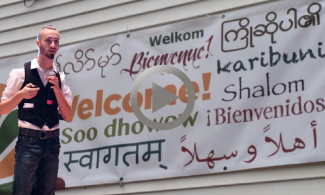 Welkom
Bienvenue!
ကြိုဆိုပါ၏
karibuni
Welcome!
Shalom
Soo dhowow
¡Bienvenidos
स्वागतम्
أهلاً و سهلاً